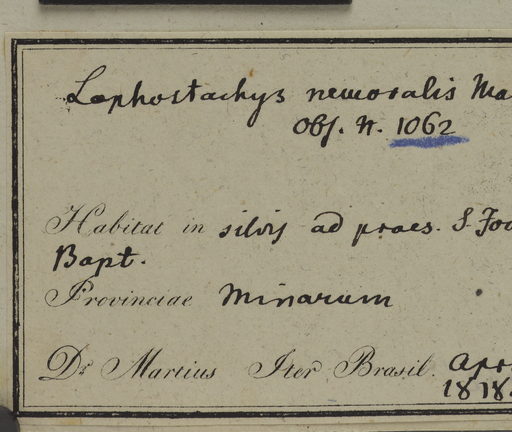 Lophostachys nemoralis Ma
Obs. N. 1062
Habitat in silvis ad praes. S. Joa
Bapt.
Provinciae Minarum
Dr. Martius Iter Brasil. Apr
1818.